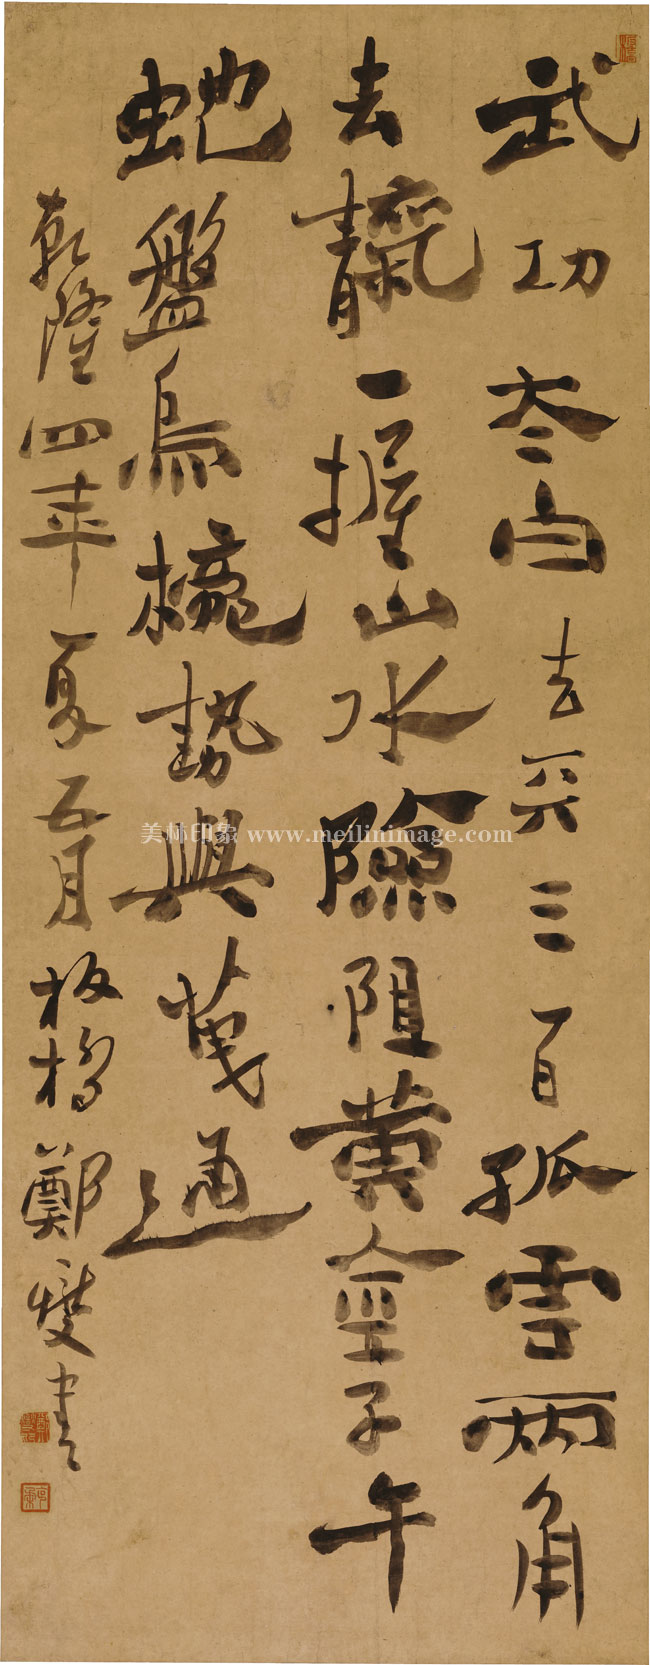 武功夳白去兲三百孤雲兩角
去靝一握山水險阻黃金子午
虵盤烏櫳勢與通
乾隆四年夏五月板橋鄭燮書
美林印象 www.meilinimage.com